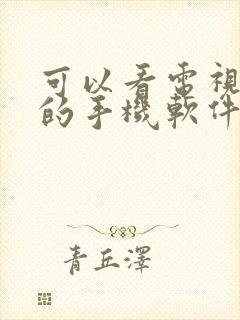 可以看電視
的手機軟件
青丘澤